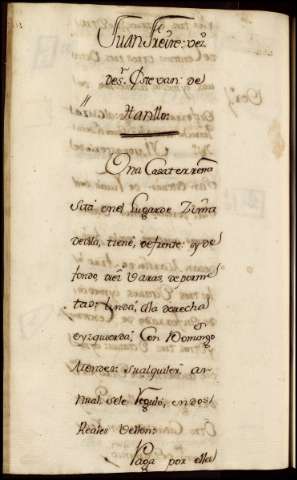 Juan Freire: vez.
des.r Estevan: de
"
Hanillo:
Una Casa terrena
Sita en el Lugar de
de villa, tiene, de frente: y de
fondo diez Varas,
linda, a la derecha
e yzquierda, Con Domingo
su alquiler: an-
nual, se le Reguló, en dos
Reales Vellon:
Paga por ella